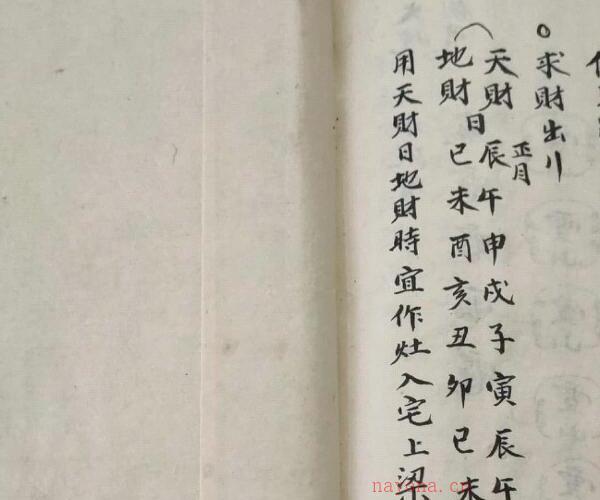 ○求財出行
天財日正月辰午申戌子寅辰午
地財巳未酉亥丑卯巳未
用天財日地財時宜作灶入宅上梁
nayona.cn